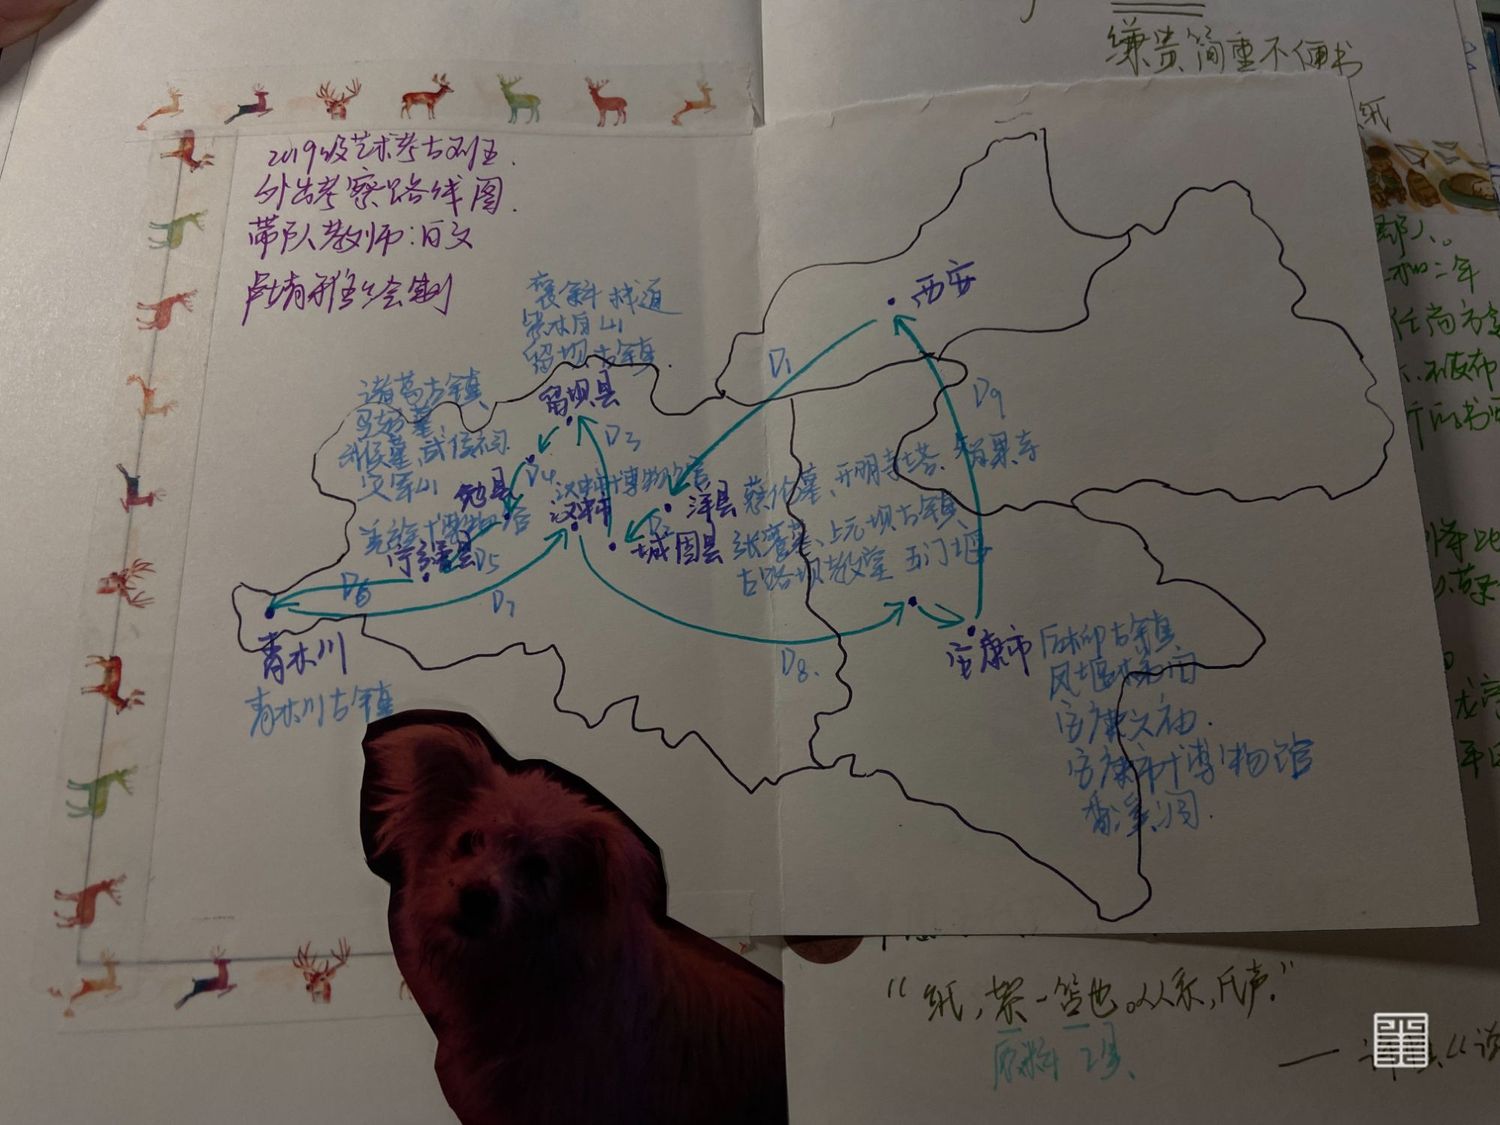 缣贵简重不便书
纸
2019级艺术考古班
外出考察路线图
带队教师:白文
绘制
褒斜栈道
紫柏山
留坝古镇
诸葛古镇
马超墓
武侯墓、武侯祠
定军山
留坝县
勉县
汉中市博物馆
汉中
羌族博物馆
宁强县
青木川
青木川古镇
西安
洋县 蔡伦墓、开明寺塔、智果寺
城固县 张骞墓、上元观古镇
古路坝教堂 五门堰
安康市 后柳古镇
凤堰梯田
安康文庙
安康市博物馆
香溪洞
D1
D2
D3
D4
D5
D6
D7
D8.
D9
和二年
任尚方令
“纸,絮一笘也。从糸,氏声。”
原料 工具